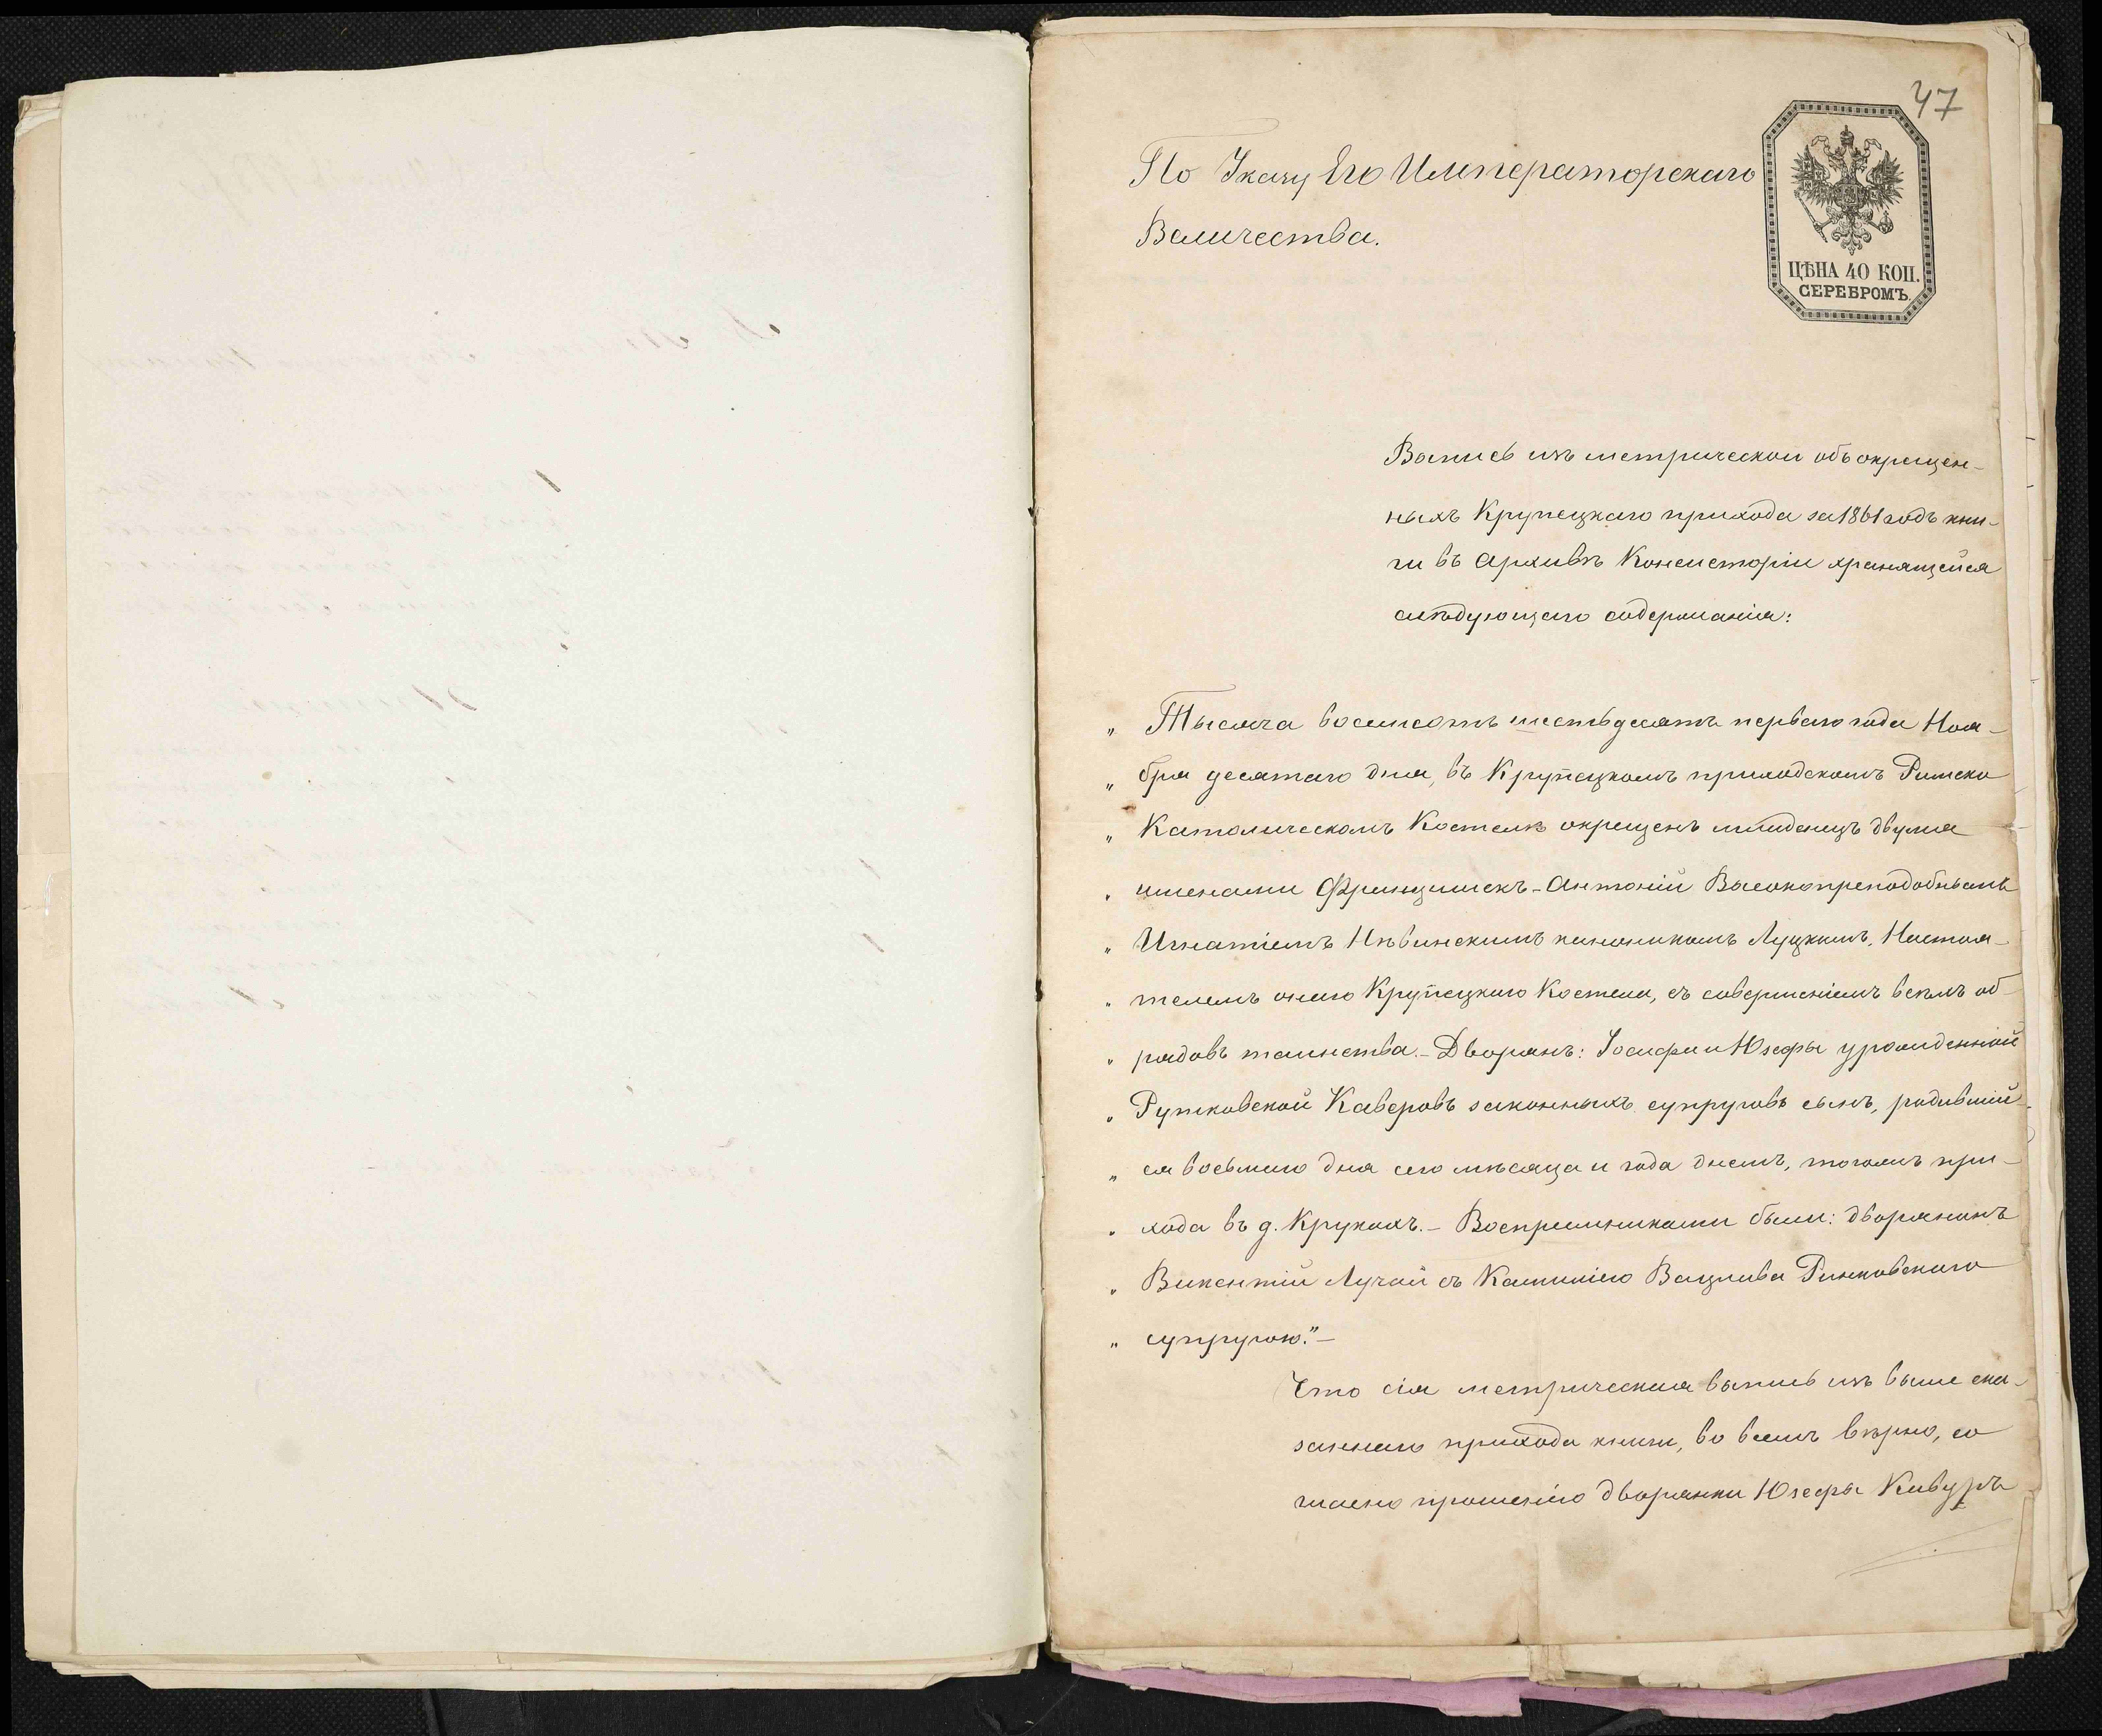 47
По Указу Его Императорскаго
Величества.
ЦѢНА 40 КОП.
СЕРЕБРОМЪ.
Выпись изъ метрической объ окрещен-
ныхъ Крупецкаго прихода за 1861 годъ кни-
ги въ Архивѣ Консисторіи хранящейся
слѣдующаго содержанія:
„ Тысяча восемсотъ шестьдесятъ перваго года Ноя-
„ бря десятаго дня, въ Крупецкомъ приходскомъ Римско
„ Католическомъ Костелѣ окрещенъ младенецъ двумя
„ именами Францишекъ-Антоній Высокопреподобнымъ
„ Игнатіемъ Нѣвинскимъ каноникомъ Луцкимъ, Настоя-
„ телемъ онаго Крупецкаго Костела, съ совершеніемъ всѣхъ об-
„ рядовъ таинства.- Дворянъ: Іосифа и Юзефы урожденной
„ Рутковской Каверовъ законныхъ супруговъ сынъ, родивший-
„ ся восьмаго дня сего мѣсяца и года днемъ, тогожъ при-
„ хода въ д. Крукахъ.- Воспріемниками были: дворянинъ
„ Викентій Лучай съ Камиліею Вацлава Рутковскаго
„ супругою."-
Что сія метрическая выпись изъ выше ска-
заннаго прихода книги, во всемъ вѣрно, со
гласно прошенію дворянки Юзефы Каверъ